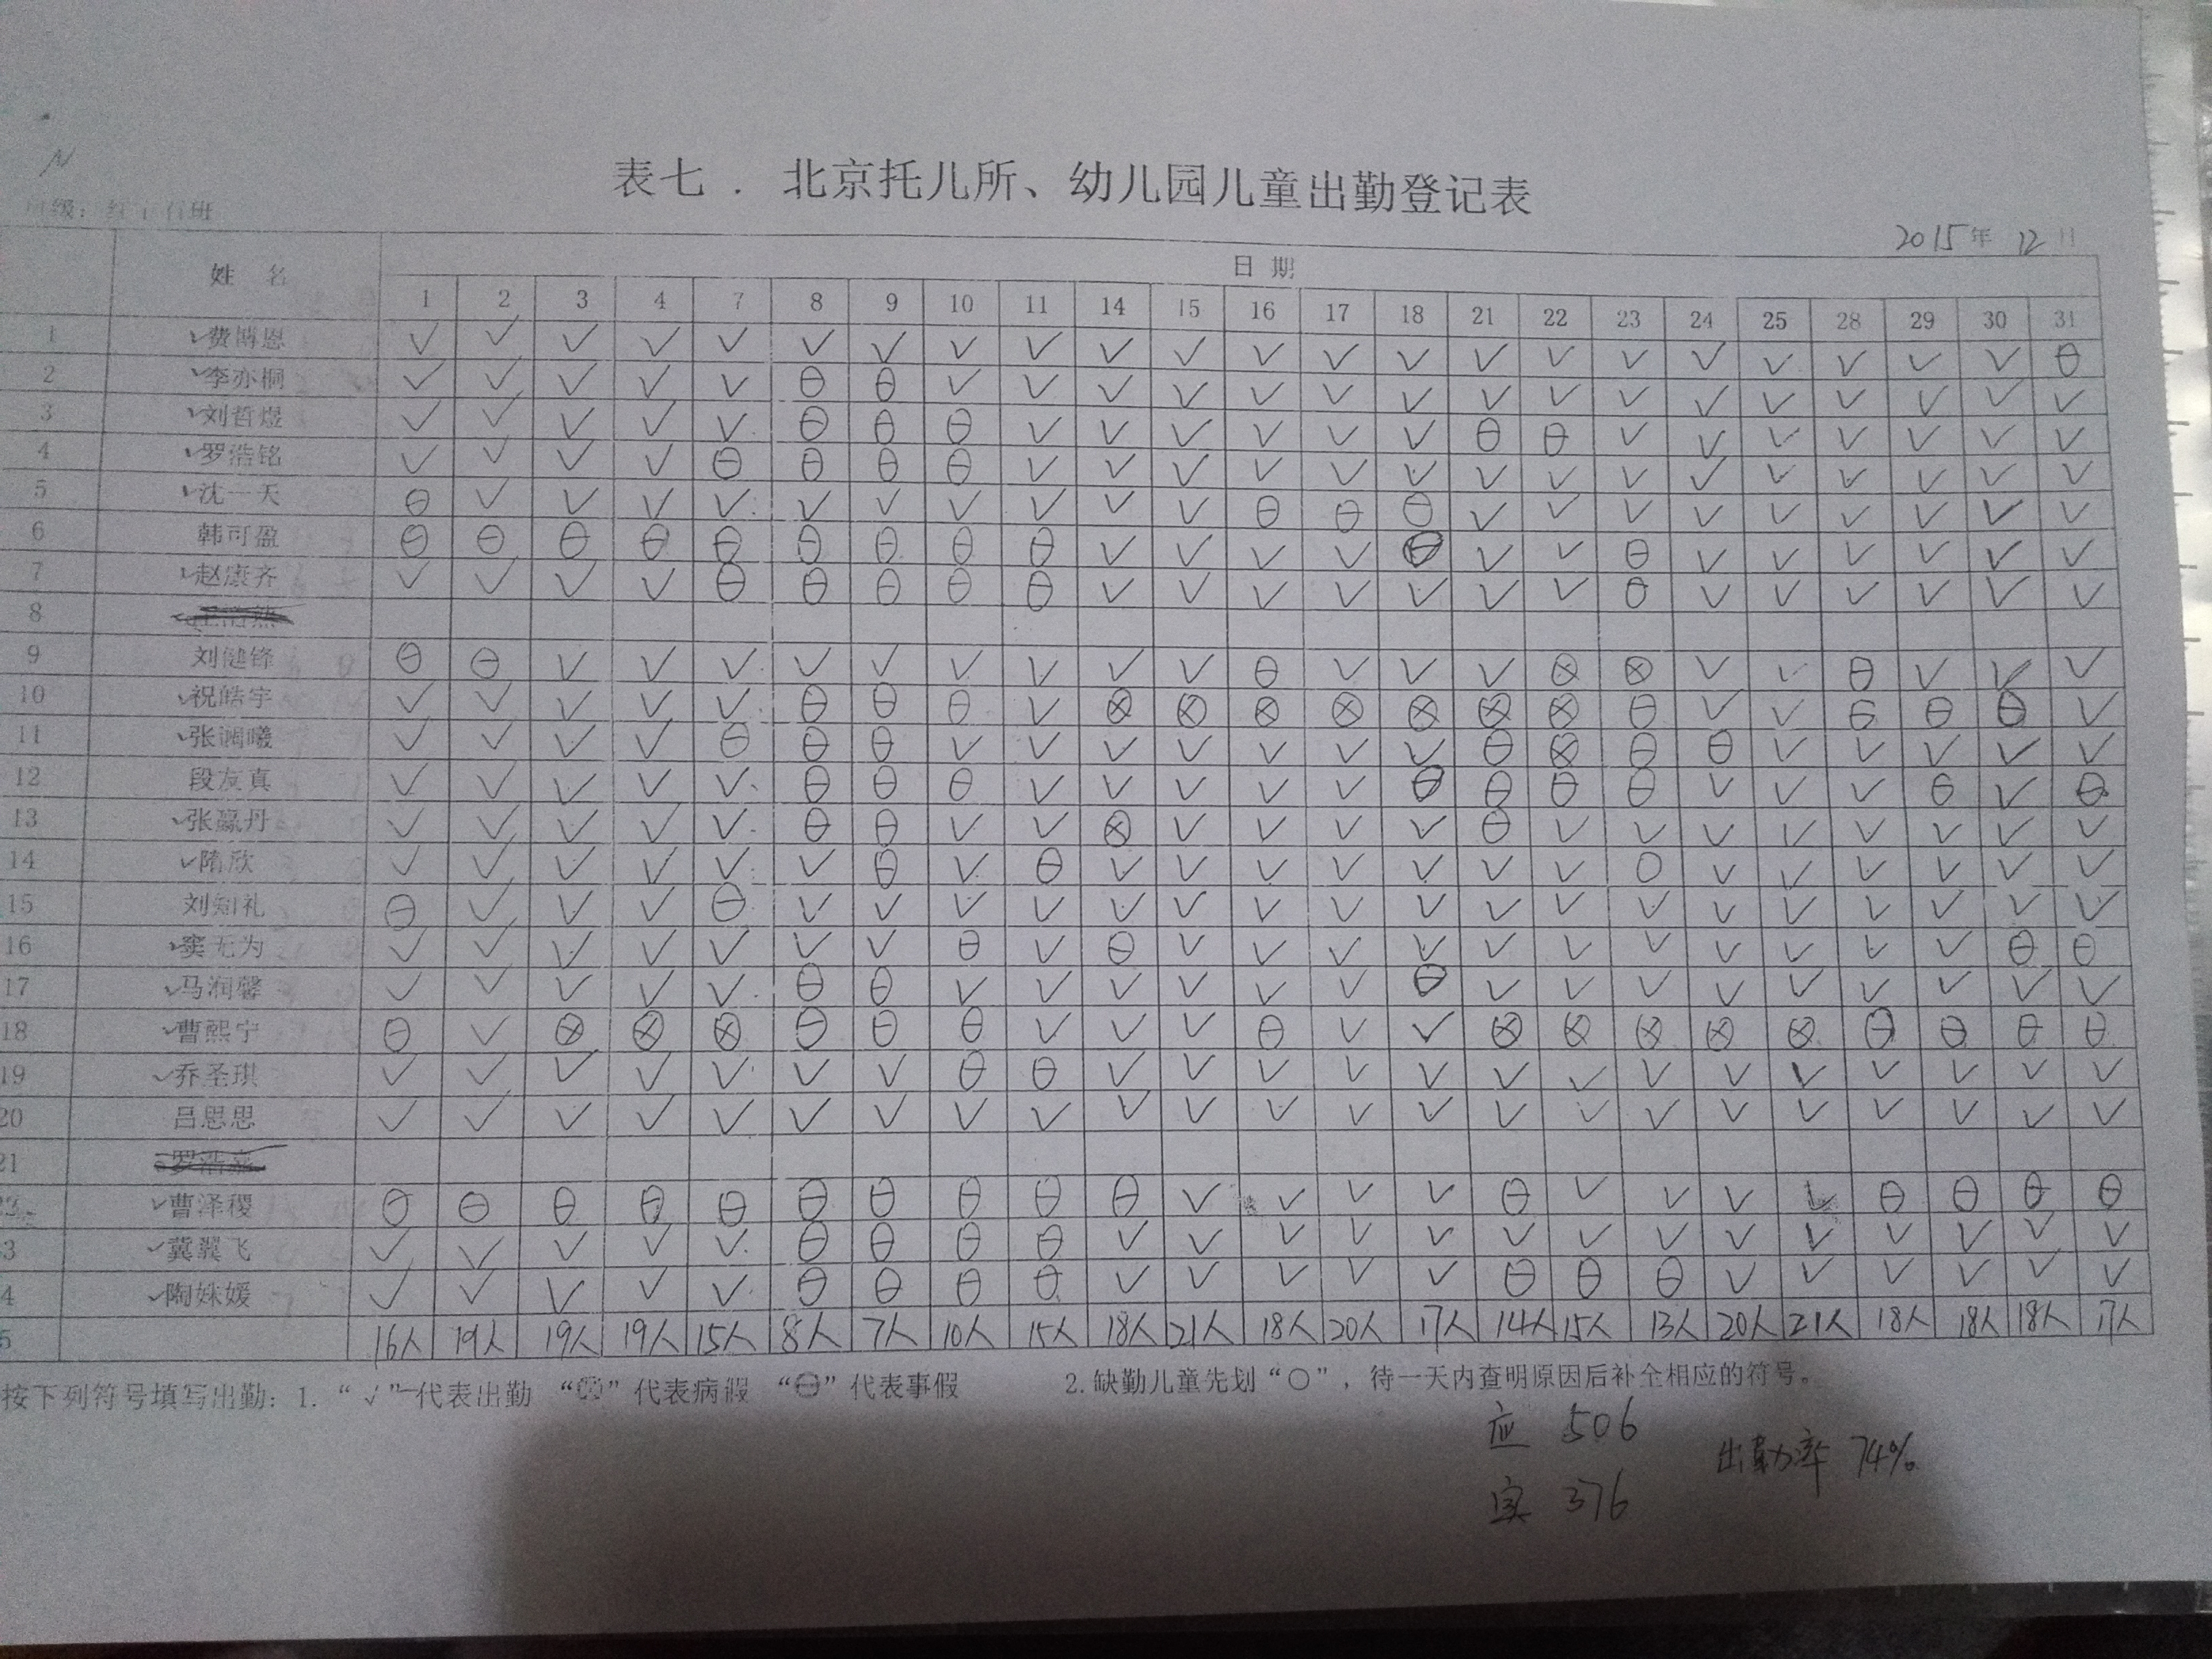 表七 . 北京托儿所、幼儿园儿童出勤登记表
2015年 12月
姓 名 日 期
1 2 3 4 7 8 9 10 11 14 15 16 17 18 21 22 23 24 25 28 29 30 31
1 ✓费博恩 √ √ √ √ √ √ √ √ √ √ √ √ √ √ √ √ √ √ √ √ √ √ ⊖
2 ✓李亦桐 √ √ √ √ √ ⊖ ⊖ √ √ √ √ √ √ √ √ √ √ √ √ √ √ √ √
3 ✓刘哲煜 √ √ √ √ √ ⊖ ⊖ ⊖ √ √ √ √ √ √ ⊖ ⊖ √ √ √ √ √ √ √
4 ✓罗浩铭 √ √ √ √ ⊖ ⊖ ⊖ ⊖ √ √ √ √ √ √ √ √ √ √ √ √ √ √ √
5 ✓沈一天 ⊖ √ √ √ √ √ √ √ √ √ √ ⊖ ⊖ ⊖ √ √ √ √ √ √ √ √ √
6 韩可盈 ⊖ ⊖ ⊖ ⊖ ⊖ ⊖ ⊖ ⊖ ⊖ √ √ √ √ ⊖ √ √ ⊖ √ √ √ √ √ √
7 ✓赵康齐 √ √ √ √ ⊖ ⊖ ⊖ ⊖ ⊖ √ √ √ √ √ √ √ ⊖ √ √ √ √ √ √
8
9 刘健锋 ⊖ ⊖ √ √ √ √ √ √ √ √ √ ⊖ √ √ √ ⊗ ⊗ √ √ ⊖ √ √ √
10 ✓祝皓宇 √ √ √ √ √ ⊖ ⊖ ⊖ √ ⊗ ⊗ ⊗ ⊗ ⊗ ⊗ ⊗ ⊖ √ √ ⊖ ⊖ ⊖ √
11 ✓张 曦 √ √ √ √ ⊖ ⊖ ⊖ √ √ √ √ √ √ √ ⊖ ⊗ ⊖ ⊖ √ √ √ √ √
12 段友真 √ √ √ √ √ ⊖ ⊖ ⊖ √ √ √ √ √ ⊖ ⊖ ⊖ ⊖ √ √ √ ⊖ √ ⊖
13 ✓张赢丹 √ √ √ √ √ ⊖ ⊖ √ √ ⊗ √ √ √ √ ⊖ √ √ √ √ √ √ √ √
14 ✓隋欣 √ √ √ √ √ √ ⊖ √ ⊖ √ √ √ √ √ √ √ ○ √ √ √ √ √ √
15 刘知礼 ⊖ √ √ √ ⊖ √ √ √ √ √ √ √ √ √ √ √ √ √ √ √ √ √ √
16 ✓窦无为 √ √ √ √ √ √ √ ⊖ √ ⊖ √ √ √ √ √ √ √ √ √ √ √ ⊖ ⊖
17 ✓马润馨 √ √ √ √ √ ⊖ ⊖ √ √ √ √ √ √ ⊖ √ √ √ √ √ √ √ √ √
18 ✓曹熙宁 ⊖ √ ⊗ ⊗ ⊗ ⊖ ⊖ ⊖ √ √ √ ⊖ √ √ ⊗ ⊗ ⊗ ⊗ ⊗ ⊖ ⊖ ⊖ ⊖
19 ✓乔圣琪 √ √ √ √ √ √ √ ⊖ ⊖ √ √ √ √ √ √ √ √ √ √ √ √ √ √
20 吕思思 √ √ √ √ √ √ √ √ √ √ √ √ √ √ √ √ √ √ √ √ √ √ √
21
✓曹泽稷 ⊖ ⊖ ⊖ ⊖ ⊖ ⊖ ⊖ ⊖ ⊖ ⊖ √ √ √ √ ⊖ √ √ √ √ ⊖ ⊖ ⊖ ⊖
3 ✓冀翼飞 √ √ √ √ √ ⊖ ⊖ ⊖ ⊖ √ √ √ √ √ √ √ √ √ √ √ √ √ √
4 ✓陶姝媛 √ √ √ √ √ ⊖ ⊖ ⊖ ⊖ √ √ √ √ √ ⊖ ⊖ ⊖ √ √ √ √ √ √
5 16人 19人 19人 19人 15人 8人 7人 10人 15人 18人 21人 18人 20人 17人 14人 15人 13人 20人 21人 18人 18人 18人 17人
按下列符号填写出勤：1. “√”代表出勤 “⊗”代表病假 “⊖”代表事假 2.缺勤儿童先划“○”，待一天内查明原因后补全相应的符号。
应 506
出勤率 74%
实 376